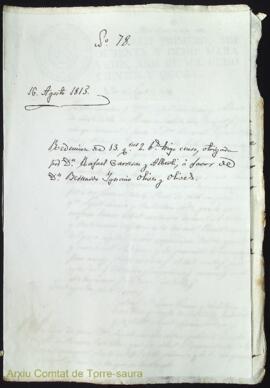 Nº 78.
16. Agosto 1813.
Redencion de 13 qnes 2 bs trigo censo, otorgada
por Dn. Rafael Carreras y Alberti, á favor de
Dn. Bernardo Ignacio Olives y Olives.
Arxiu Comtat de Torre-saura